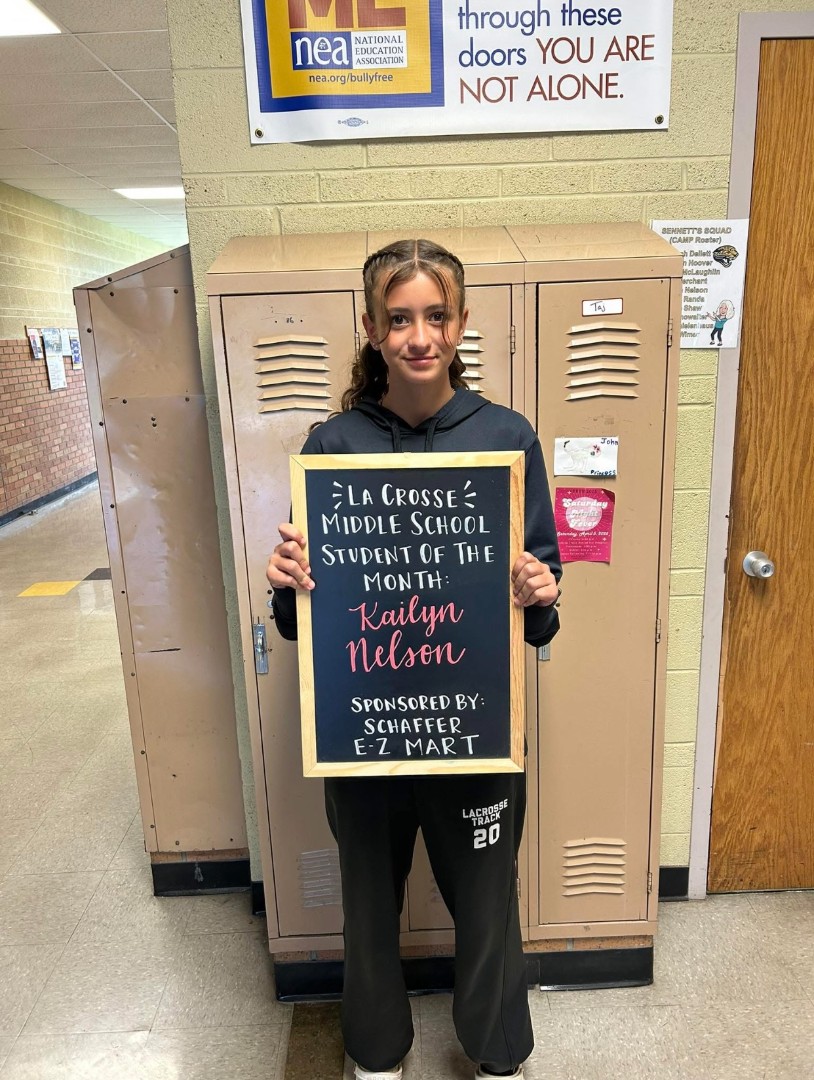 ME
nea
NATIONAL
EDUCATION
ASSOCIATION
nea.org/bullyfree
through these
doors YOU ARE
NOT ALONE.
SENNETT'S SQUAD
(CAMP Roster)
Dellett
Hoover
McLaughlin
Nelson
Randa
Shaw
Taj
John
Princess
Saturday
Night
Fever
LA CROSSE
MIDDLE SCHOOL
STUDENT OF THE
MONTH:
Kailyn
Nelson
SPONSORED BY:
SCHAFFER
E-Z MART
LACROSSE
TRACK
20